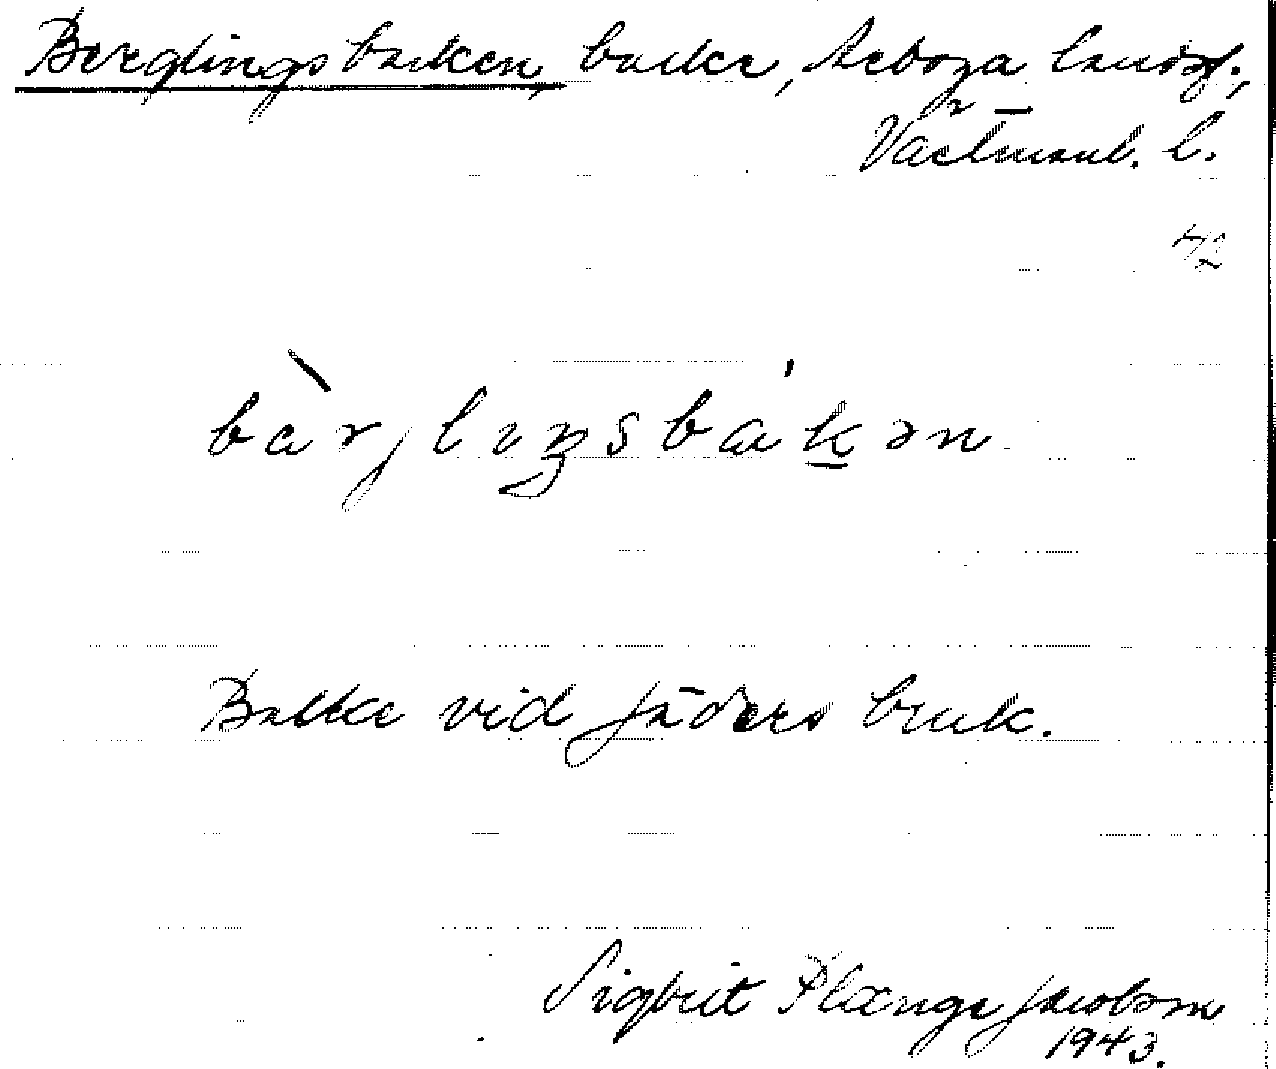 Berglingsbacken, backe, Arboga landsf.,
Västmanl. l.
42
bàrjlıŋsbákən
Backe vid Jäders bruk.
Sigbrit Plænge Jacobson
1943.